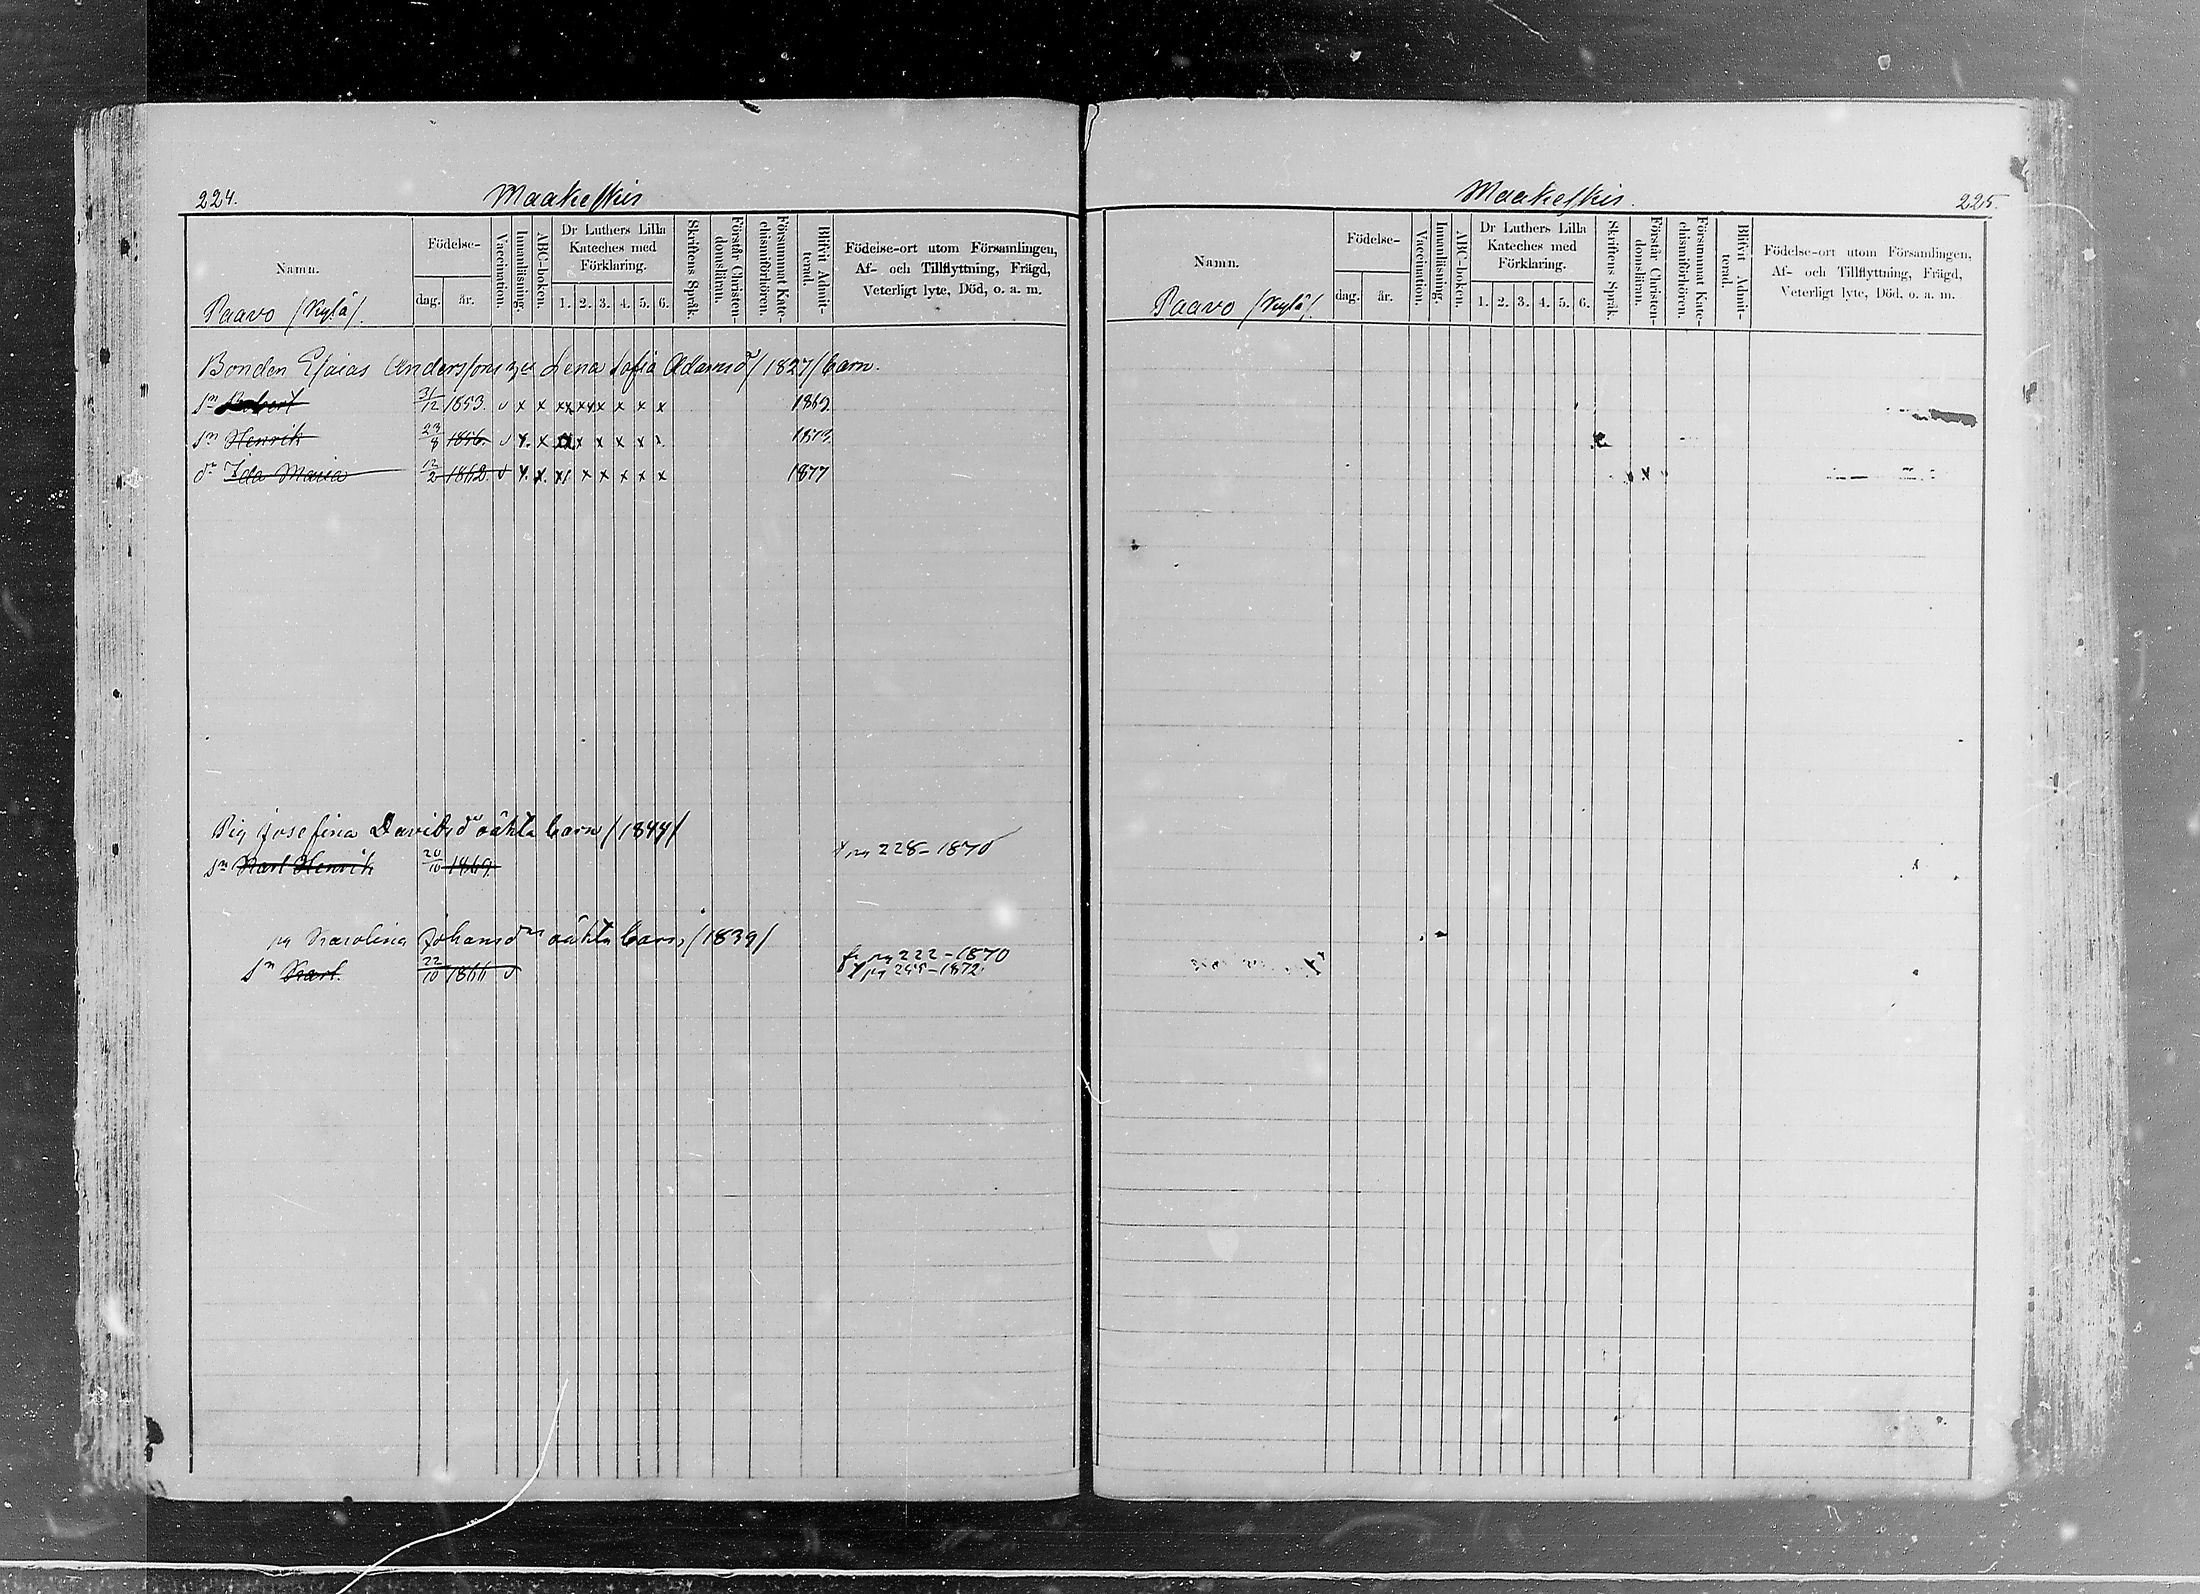 224.
Maakeskis
Namn.
Födelse-
dag.
år.
Vaccination.
Innanläsning.
ABC-boken.
Dr Luthers Lilla
Kateches med
Förklaring.
1. 2. 3. 4. 5. 6.
Skriftens Språk.
Förstår Christen-
domslären.
Försummat Kate-
chismiförhören.
Blifvit Admit-
terad.
Födelse-ort utom Församlingen,
Af- och Tillflyttning, Frägd,
Veterligt lyte, Död, o. a. m.
Paavo /Kylä/.
Bonden Esaias Anderssons Lena Sofia Adamsdr /1827/ barn.
sn Robert 3/12 1853. v x x xx xx x x x x 1869.
sn Henrik 23/8 1856. v x. x x x x x x x. 1873.
dr Ida Maria 12/2 1862. v x. x. x x x x x x 1877
Pig Josefina Davidsdr oäkta barn /1844/
sn Karl Henrik 20/10 1869. t pg 228-1870
pg Karolina Johansdrs oäkta barn, /1839/
fr pg 222-1870
sn Karl. 22/10 1866 v t pg 255-1872
Maakeskis.
225.
Namn.
Födelse-
dag.
år.
Vaccination.
Innanläsning.
ABC-boken.
Dr Luthers Lilla
Kateches med
Förklaring.
1. 2. 3. 4. 5. 6.
Skriftens Språk.
Förstår Christen-
domslären.
Försummat Kate-
chismiförhören.
Blifvit Admit-
terad.
Födelse-ort utom Församlingen,
Af- och Tillflyttning, Frägd,
Veterligt lyte, Död, o. a. m.
Paavo /Kylä/.